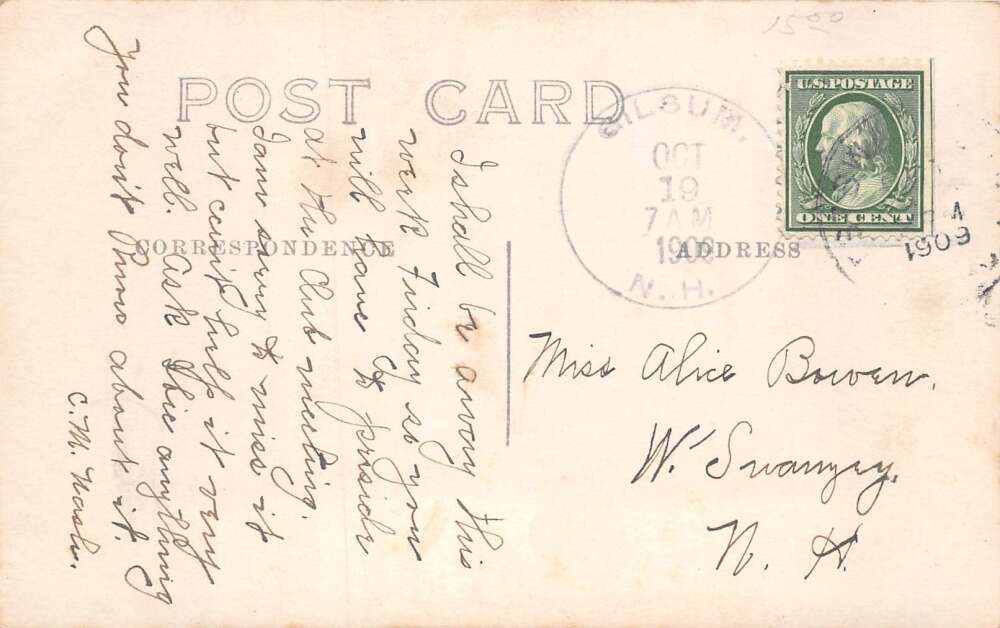 15 00
POST CARD
CORRESPONDENCE
ADDRESS
U.S. POSTAGE
ONE CENT
GILSUM,
OCT
19
7 AM
1909
N. H.
1909
I shall be away this
week Friday so you
will have to preside
at the Club meeting.
I am sorry to miss it
but can't help it very
well. Ask anything
You don't know about it.
C. M. Nash.
Miss Alice Bowen.
W. Swanzey.
N. H.